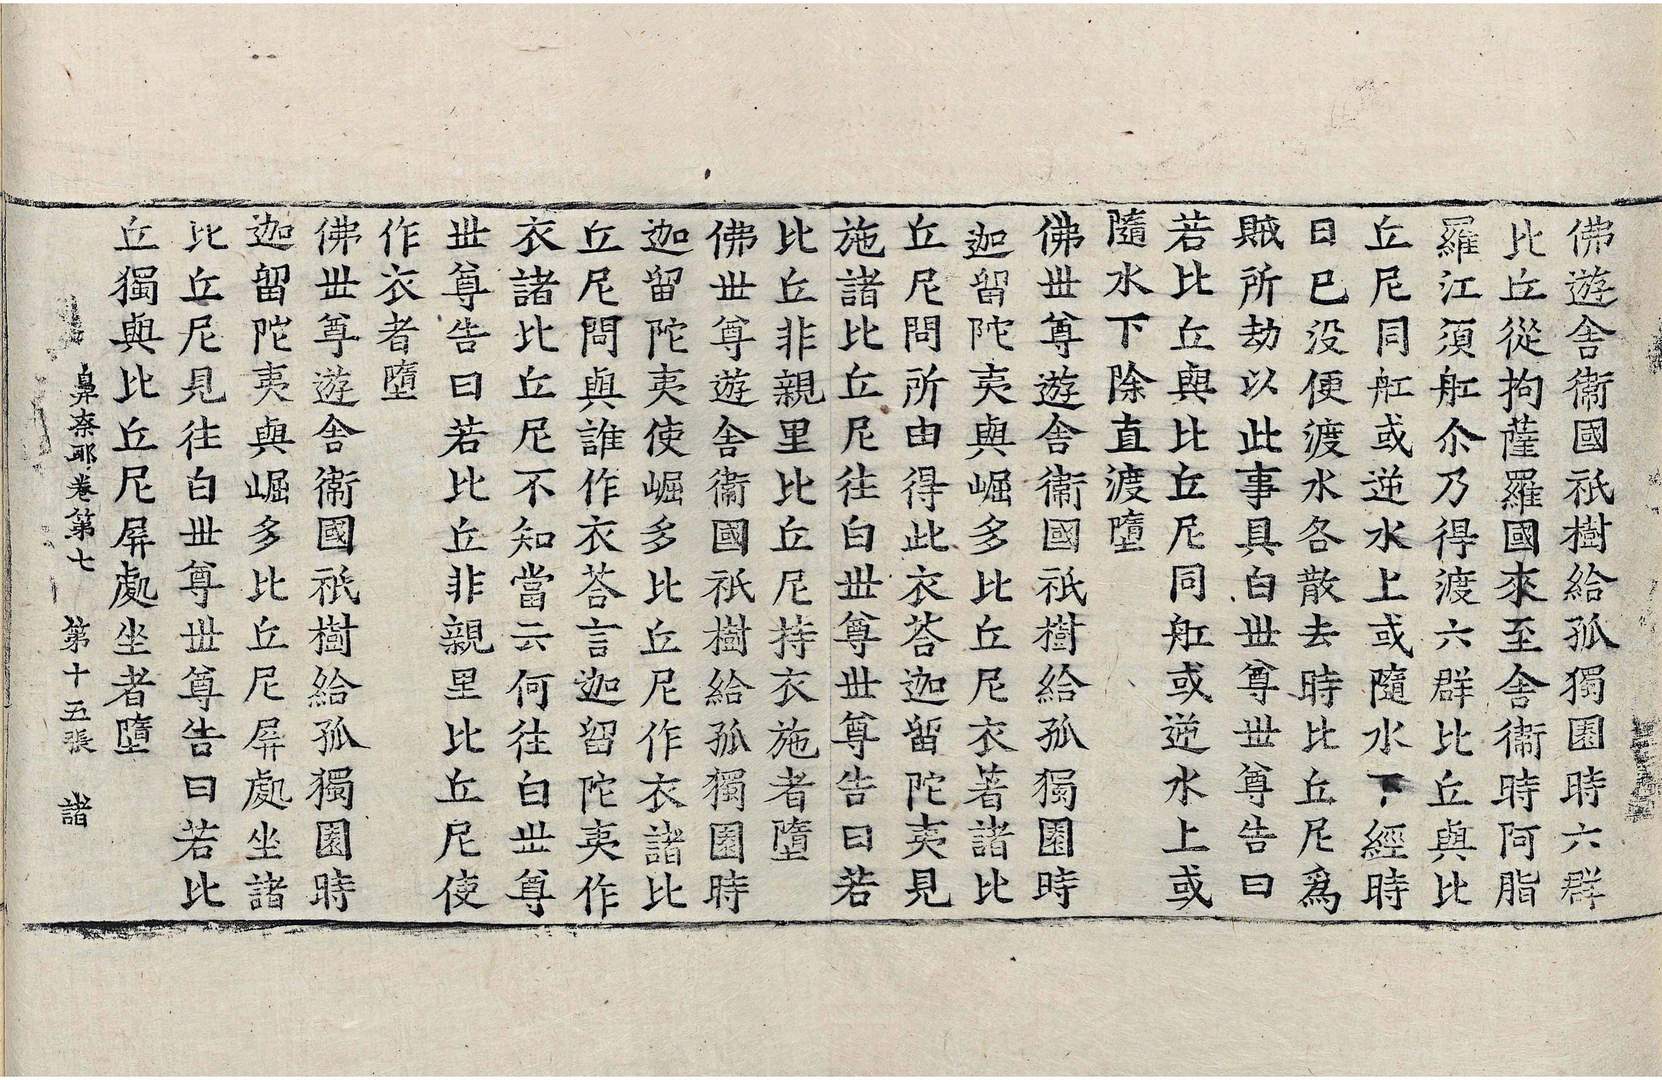 佛遊舍衞國祇樹給孤獨園時六群
比丘從拘薩羅國來至舍衞時阿脂
羅江須舡尒乃得渡六群比丘與比
丘尼同舡或逆水上或隨水下經時
日已没便渡水各散去時比丘尼爲
賊所劫以此事具白世尊世尊告曰
若比丘與比丘尼同舡或逆水上或
隨水下除直渡墮
佛世尊遊舍衞國祇樹給孤獨園時
迦留陀夷與崛多比丘尼衣著諸比
丘尼問所由得此衣荅迦留陀夷見
施諸比丘尼往白世尊世尊告曰若
比丘非親里比丘尼持衣施者墮
佛世尊遊舍衞國祇樹給孤獨園時
迦留陀夷使崛多比丘尼作衣諸比
丘尼問與誰作衣荅言迦留陀夷作
衣諸比丘尼不知當云何往白世尊
世尊告曰若比丘非親里比丘尼使
作衣者墮
佛世尊遊舍衞國祇樹給孤獨園時
迦留陀夷與崛多比丘尼屏處坐諸
比丘尼見往白世尊世尊告曰若比
丘獨與比丘尼屏處坐者墮
鼻奈耶卷第七 第十五張 諸